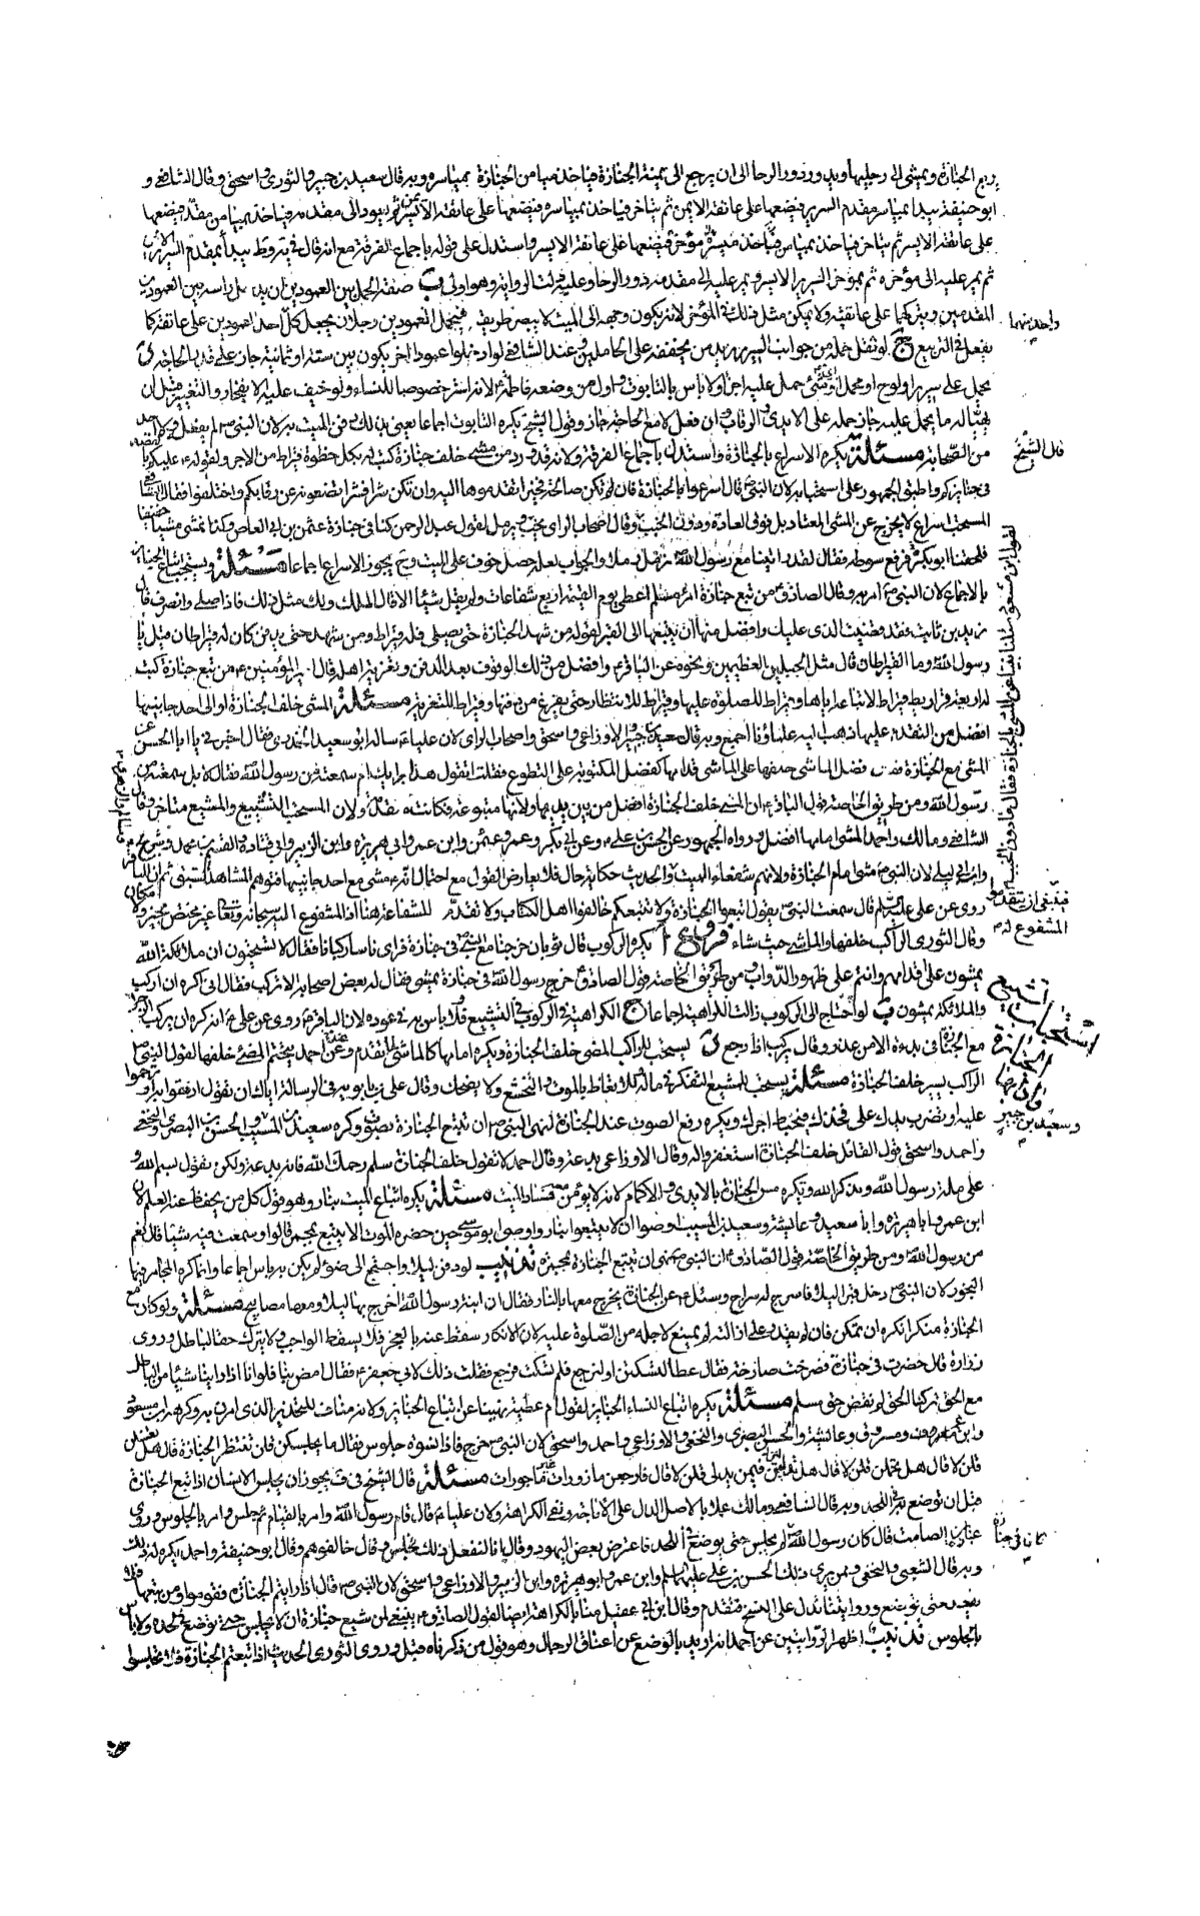 يربع الجنازة ويمشي الى رجليها ويدور دور الرحا الى ان يرجع الى يمنة الجنازة فياخذ ميامن الجنازة بمياسره وبه قال سعيد بن جبير والثوري واسحق وقال الشافعي و
ابو حنيفة يبدا بمياسر مقدم السرير فيضعها على عاتقه الايمن ثم يتاخر فياخذ بمياسره فيضعها على عاتقه الايمن ثم يعود الى مقدمه فياخذ بميامن مقدمه فيضعها
على عاتقه الايسر ثم يتاخر فياخذ بميامن فياخذ ميسرة مؤخره فيضعها على عاتقه الايسر واستدل على قوله باجماع الفرقة مع انه قال في يه وط يبدأ بمقدم السرير الايمن
ثم يمر عليه الى مؤخره ثم بمؤخر السرير الايسر ويمر عليه الى مقدمه دور الرحا وعليه دلت الرواية وهو اولى ب صفة الحمل بين العمودين ان يدخل راسه بين العمودين
المقدمين ويتركهما على عاتقيه ولا يمكن مثل ذلك في المؤخر لانه يكون وجهه الى الميت لا يبصر طريقه فيحمل العمودين رجلان يجعل كل احد العمودين على عاتقه كما
واحد منهما
يفعل في التربيع ج لو ثقل حمله من جوانب السرير زيد من يخففه على الحاملين وعند الشافعي لو ادخلوا عمودا اخر يكون بين ستة او ثمانية جاز على قدر الحاجة د
يحمل على سرير او لوح او محمل واي شئ حمل عليه اجزأ ولا باس بالتابوت واول من وضعه فاطمة ع لانه استر خصوصا للنساء ولو خيف عليه الانفجار والتغيير قبل ان
يهيئ له ما يحمل عليه جاز حمله على الايدي والرقاب وان فعل لا مع الحاجة جاز وقول الشيخ يكره التابوت اجماعا يعني بذلك دفن الميت به لان النبي ص لم يفعل ولا احد
من الصحابة مسئلة يكره الاسراع بالجنازة واستدل باجماع الفرقة ولانه قد ورد من مشى خلف جنازة كتب له بكل خطوة قيراط من الاجر ولقوله ع عليكم بالقصد
قال الشيخ
في جنائزكم واطبق الجمهور على استحبابه لان النبي ص قال اسرعوا بالجنازة فان تكن صالحة فخير تقدموها اليه وان تكن شرا فشر تضعونه عن رقابكم واختلفوا فقال الشافعي
المستحب اسراع لا يخرج عن المشي المعتاد بل فوق العادة ودون الخبب وقال اصحاب الراي يخب ويرمل لقول عبد الرحمن كنا في جنازة عثمن بن ابي العاص وكنا نمشي مشيا خفيفا
فلحقنا ابو بكرة فرفع سوطه فقال لقد رايتنا مع رسول الله ص نرمل رملا والجواب لعله حصل خوف على الميت وح يجوز الاسراع اجماعا مسئلة ويستحب اتباع الجنازة
بالاجماع لان النبي ص امر به وقال الصادق ع من تبع جنازة امرئ مسلم اعطي يوم القيمة اربع شفاعات ولم يقل شيئا الا قال الملك ولك مثل ذلك فاذا صلى وانصرف قال
زيد بن ثابت فقد قضيت الذي عليك وافضل منها ان يتبعها الى القبر لقوله من شهد الجنازة حتى يصلي فله قيراط ومن شهد حتى يدفن كان له قيراطان قيل يا
رسول الله وما القيراطان قال مثل الجبلين العظيمين ونحوه عن الباقر ع وافضل من ذلك الوقوف بعد الدفن وتعزية اهله قال امير المؤمنين ع من تبع جنازة كتب
له اربعة قراريط قيراط لاتباعه اياها وقيراط للصلوة عليها وقيراط للانتظار حتى يفرغ من دفنها وقيراط للتعزية مسئلة المشي خلف الجنازة او الى احد جانبيها
افضل من التقدم عليها ذهب اليه علماؤنا اجمع وبه قال سعيد بن جبير والاوزاعي واسحق واصحاب الراي لان عليا ع ساله ابو سعيد الخدري فقال اخبرني يا ابا الحسن عن
المشي مع الجنازة فقال فضل الماشي خلفها على الماشي قدامها كفضل المكتوبة على التطوع فقلت اتقول هذا برايك ام سمعته من رسول الله فقال لا بل سمعته من
رسول الله ومن طريق الخاصة قول الباقر ع ان المشي خلف الجنازة افضل من بين يديها ولانها متبوعة فكانت مقدمة ولان المستحب التشييع والمشيع متاخر وقال
الشافعي ومالك واحمد المشي امامها افضل ورواه الجمهور عن الحسن بن علي ع وعن ابي بكر وعمر وعثمن وابن عمر وابي هريرة وابن الزبير وابي قتادة والقسم بن محمد وشريح
وابن ابي ليلى لان النبي ص مشى امام الجنازة ولانهم شفعاء الميت والحديث حكاية حال فلا يعارض القول مع احتمال انه ع مشى مع احد جانبيها فتوهم المشاهد السبق ثم ان الباقر
روى عن علي عليه السلم قال سمعت النبي ص يقول اتبعوا الجنازة ولا تتبعكم خالفوا اهل الكتاب ولا تقدم للشفاعة هنا اذ المشفوع اليه سبحانه وتعالى غير مختص بحيز ومكان
فينبغي ان يتقدموا المشفوع له
وقال الثوري الراكب خلفها والماشي حيث شاء فروع ا يكره الركوب قال ثوبان خرجنا مع النبي ص في جنازة فراى ناسا ركبانا فقال الا تستحيون ان ملائكة الله
يمشون على اقدامهم وانتم على ظهور الدواب ومن طريق الخاصة قول الصادق ع خرج رسول الله في جنازة يمشي فقال له بعض اصحابه الا تركب فقال اني اكره ان اركب
والملائكة يمشون ب لو احتاج الى الركوب زالت الكراهية اجماعا ج الكراهية في الركوب في التشييع فلا باس به في عوده لان الباقر ع روى عن علي ع انه كره ان يركب الرجل
مع الجنازة في بدءة الا من عذر وقال يركب اذا رجع د يستحب للراكب المضي خلف الجنازة ويكره امامها كالماشي لما تقدم وعن احمد يختم المضي خلفها لقول النبي ص
الراكب يسير خلف الجنازة مسئلة يستحب للمشيع التفكر في مآله والاتعاظ بالموت والتخشع ولا يضحك وقال علي بن بابويه في الرسالة اياك ان تقول ارفقوا به وترحموا
عليه او تضرب يدك على فخذك فيحبط اجرك ويكره رفع الصوت عند الجنازة لنهي النبي ص ان تتبع الجنازة بصوت وكره سعيد بن المسيب والحسن البصري والنخعي
وسعيد بن جبير
واحمد واسحق قول القائل خلف الجنازة استغفروا له وقال الاوزاعي بدعة وقال احمد لا تقول خلف الجنازة سلم رحمك الله فانه بدعة ولكن يقول بسم الله و
على ملة رسول الله ويذكر الله ويكره مس الجنازة بالايدي والاكمام لانه لا يؤمن معه فساد الميت مسئلة يكره اتباع الميت بنار وهو قول كل من يحفظ عنه العلم لان
ابن عمر وابا هريرة وابا سعيد وعايشة وسعيد بن المسيب اوصوا ان لا يتبعوا بنار واوصى ابو موسى حين حضره الموت الا يتبع بمجمر قالوا وسمعت فيه شيئا قال نعم
من رسول الله ومن طريق الخاصة قول الصادق ع ان النبي ص نهى ان تتبع الجنازة بمجمرة تذنيب لو دفن ليلا واحتيج الى ضوء لم يكن به باس اجماعا وانما كره المجامر فيها
البخور لان النبي ص دخل قبرا ليلا فاسرج له سراج وسئل ع عن الجنازة يخرج معها بالنار فقال ان ابنة رسول الله اخرج بها ليلا ومعها مصابيح مسئلة ولو كان مع
الجنازة منكر انكره ان تمكن فان لم يقدر على ازالته لم يمتنع لاجله من الصلوة عليه لان الانكار سقط عنه بالعجز فلا يسقط الواجب ولا يترك حقا لباطل وروى
زرارة قال حضرت في جنازة فصرخت صارخة فقال عطا لتسكتن او لنرجع فلم تسكت فرجع فقلت ذلك لابي جعفر ع فقال امض بنا فلو انا اذا راينا شيئا من الباطل
مع الحق تركنا الحق لم نقض حق مسلم مسئلة يكره اتباع النساء الجنايز لقول ام عطية نهينا عن اتباع الجنايز ولانه مناف للتخدير الذي امرن به وكره ابن مسعود
وابن عمر ومسروق وعايشة والحسن البصري والنخعي والاوزاعي واحمد واسحق لان النبي ص خرج فاذا نسوة جلوس فقال ما يجلسكن قلن ننتظر الجنازة قال هل تغسلن
قلن لا قال هل تحملن قلن لا قال هل تدلين فيمن يدلي قلن لا قال فارجعن مازورات غير ماجورات مسئلة قال الشيخ في ف يجوز ان يجلس الانسان اذا تبع الجنازة
قبل ان توضع في اللحد وبه قال الشافعي ومالك عملا بالاصل الدال على الاباحة ونفي الكراهة ولان عليا ع قال قام رسول الله وامر بالقيام ثم جلس وامر بالجلوس وروى
عبادة بن الصامت قال كان رسول الله ص لم يجلس حتى يوضع في اللحد فاعترض بعض اليهود وقال انا لنفعل ذلك فجلس وقال خالفوهم وقال ابو حنيفة واحمد يكره له ذلك
كان في جنازة
وبه قال الشعبي والنخعي وممن يرى ذلك الحسن بن علي عليهما السلم وابن عمر وابو هريرة وابن الزبير والاوزاعي واسحق لان النبي ص قال اذا رايتم الجنازة فقوموا ومن تبعها فلا
يقعد حتى توضع وروايتنا تدل على النسخ فتقدم وقال ابن ابي عقيل منا بالكراهة ايضا لقول الصادق ع ينبغي لمن شيع جنازة ان لا يجلس حتى توضع في لحده ولا باس
بالجلوس تذنيب اظهر الروايتين عن احمد انه اريد بالوضع عن اعناق الرجال وهو قول من ذكرناه قبل وروى الثوري الحديث اذا تبعتم الجنازة فلا تجلسوا